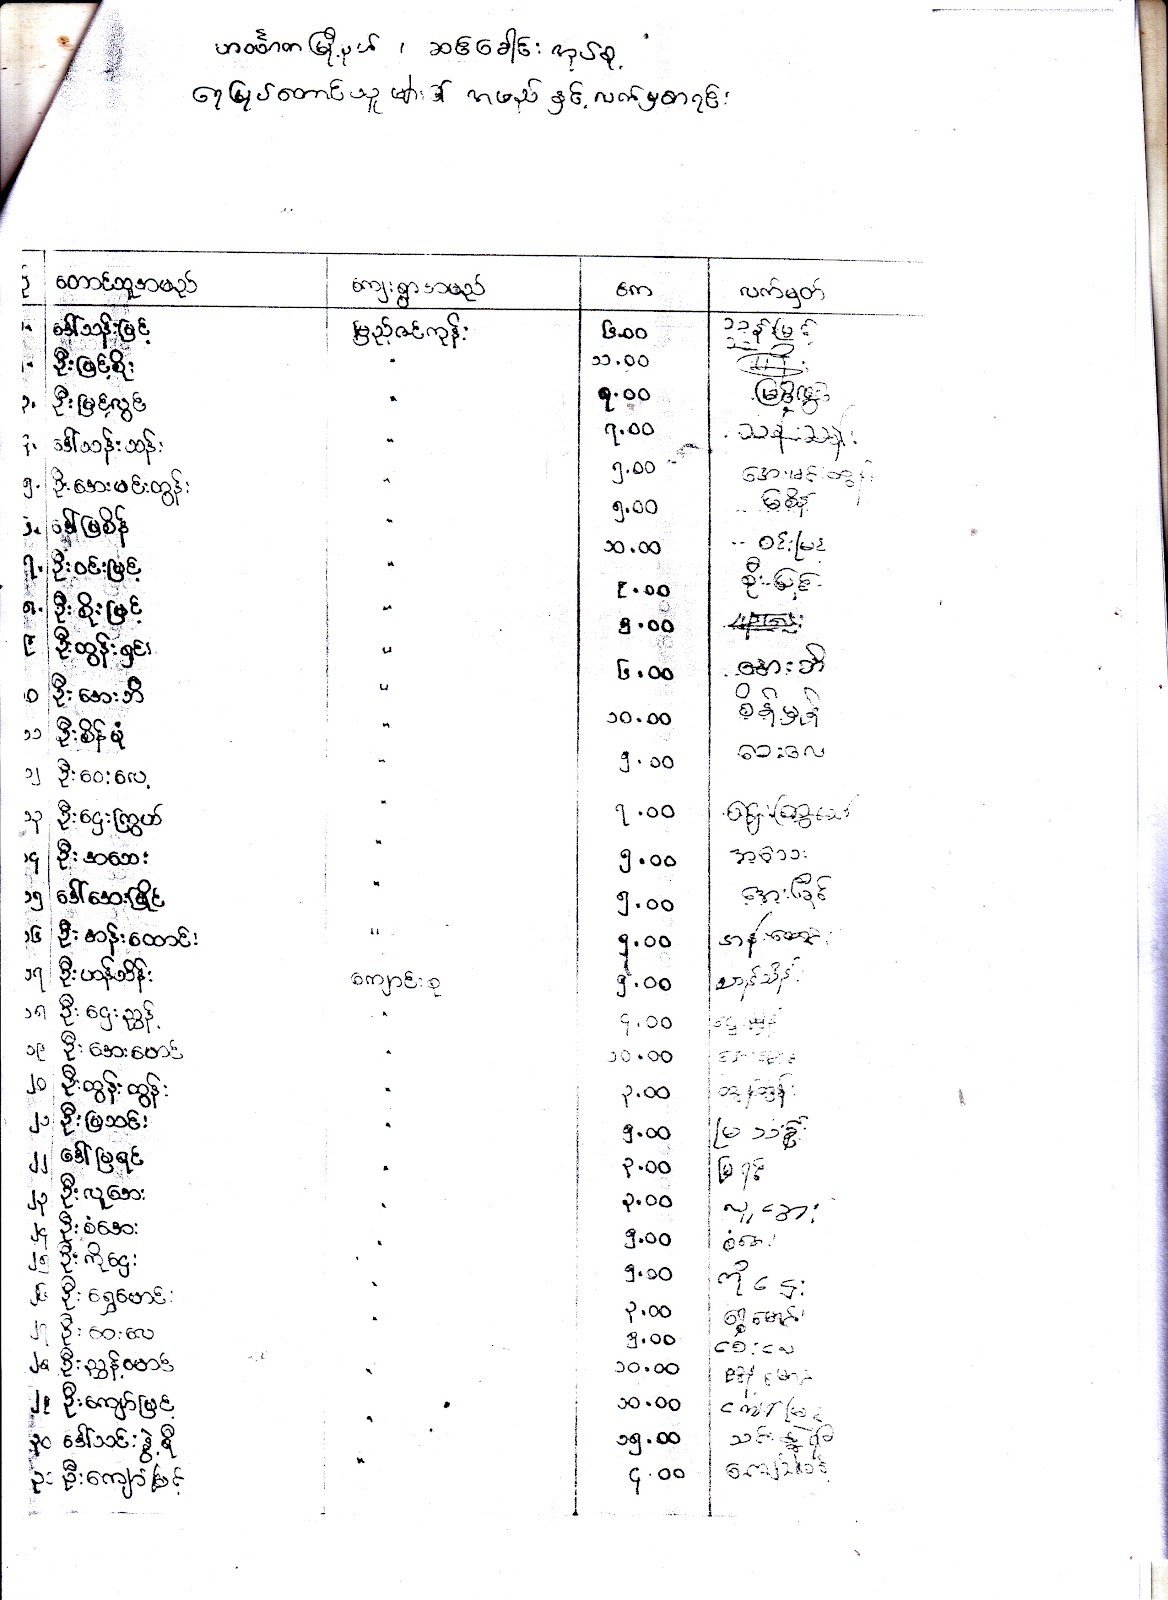 ဟင်္သာတမြို့နယ် ၊ ဆင်ခေါင်းအုပ်စု
ရေမြုပ်တောင်သူများ၏ အမည်နှင့် လက်မှတ်စာရင်း
စဉ် တောင်သူအမည် ကျေးရွာအမည် ဧက လက်မှတ်
၁။ ဒေါ်သန်းမြင့် မြည့်ဇင်ကုန်း ၆.၀၀ သန်းမြင့်
၂။ ဦးမြင့်စိုး " ၁၁.၀၀
၃။ ဦးမြင့်လွင် " ၅.၀၀ မြင့်လွင်
၄။ ဒေါ်သန်းသန်း " ၇.၀၀ သန်းသန်း
၅။ ဦးအေးမင်းထွန်း " ၅.၀၀ အေးမင်းထွန်း
၆။ ဒေါ်မြစိန် " ၅.၀၀ မြစိန်
၇။ ဦးဝင်းမြင့် " ၁၀.၀၀ ဝင်းမြင့်
၈။ ဦးစိုးမြင့် " ၉.၀၀ စိုးမြင့်
၉ ဦးထွန်းရှင်း " ၅.၀၀
၁၀ ဦးအေးဘီ " ၆.၀၀ အေးဘီ
၁၁ ဦးစိန်မှုံ " ၁၀.၀၀ စိန်မှုန်
၁၂ ဦးဝေးလေ့ " ၅.၀၀
၁၃ ဦးဌေးကြွယ် " ၇.၀၀
၁၄ ဦးအသေး " ၅.၀၀ အသေး
၁၅ ဒေါ်အေးမြိုင် " ၅.၀၀ အေးမြိုင်
၁၆ ဦးအုန်းထောင်း " ၅.၀၀
၁၇ ဦးဟန်သိန်း ကျောင်းစု ၅.၀၀ ဟန်သိန်း
၁၈ ဦးဌေးညွန့် " ၄.၀၀
၁၉ ဦးအေးမောင် " ၁၀.၀၀
၂၀ ဦးထွန်းထွန်း " ၃.၀၀ ထွန်းထွန်း
၂၁ ဦးမြသင်း " ၅.၀၀
၂၂ ဒေါ်မြရင် " ၃.၀၀ မြရင်
၂၃ ဦးလူအေး " ၃.၀၀ လူအေး
၂၄ ဦးစံအေး " ၅.၀၀ စံအေး
၂၅ ဦးကိုဌေး " ၅.၀၀ ကိုဌေး
၂၆ ဦးရွှေမောင်း " ၃.၀၀ ရွှေမောင်း
၂၇ ဦးဝေးလေ " ၅.၀၀
၂၈ ဦးညွန့်မောင် " ၁၀.၀၀ ညွန့်မောင်
၂၉ ဦးကျော်မြင့် " ၁၀.၀၀ ကျော်မြင့်
၃၀ ဒေါ်သင်းနွဲ့ရီ " ၁၅.၀၀ သင်းနွဲ့ရီ
၃၁ ဦးကျော်မြင့် " ၄.၀၀ ကျော်မြင့်